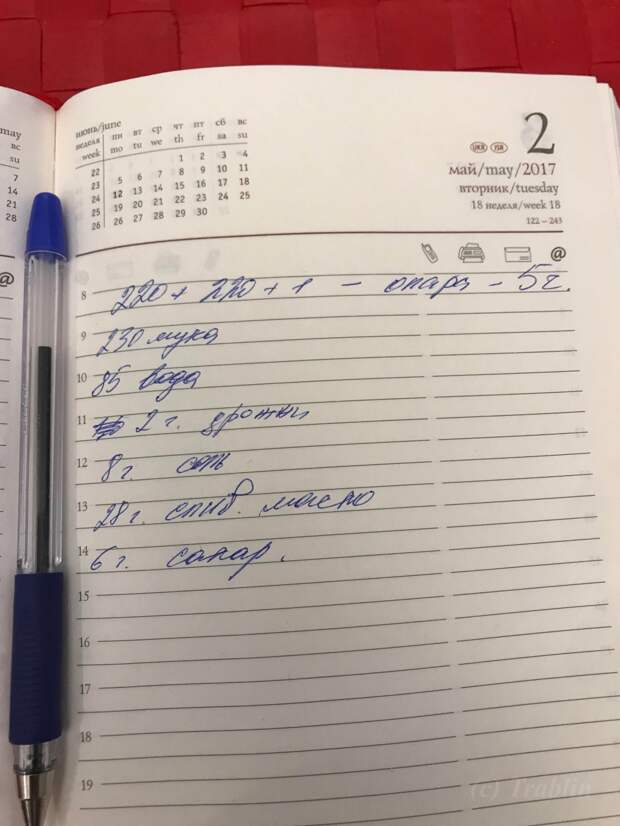 may
вс
su
7
14
21
28
@
июнь/june
неделя пн вт ср чт пт сб вс
week mo tu we th fr sa su
22 1 2 3 4
23 5 6 7 8 9 10 11
24 12 13 14 15 16 17 18
25 19 20 21 22 23 24 25
26 26 27 28 29 30
UKR РЯ 2
май/may/2017
вторник/tuesday
18 неделя/week 18
122 – 243
@
8 220 + 220 + 1 – опара – 5 г.
9 230 мука
10 85 вода
11 2 г. дрожжи
12 8 г. соль
13 28 г. слив. масло
14 6 г. сахар.
15
16
17
18
19
(c) Trablin